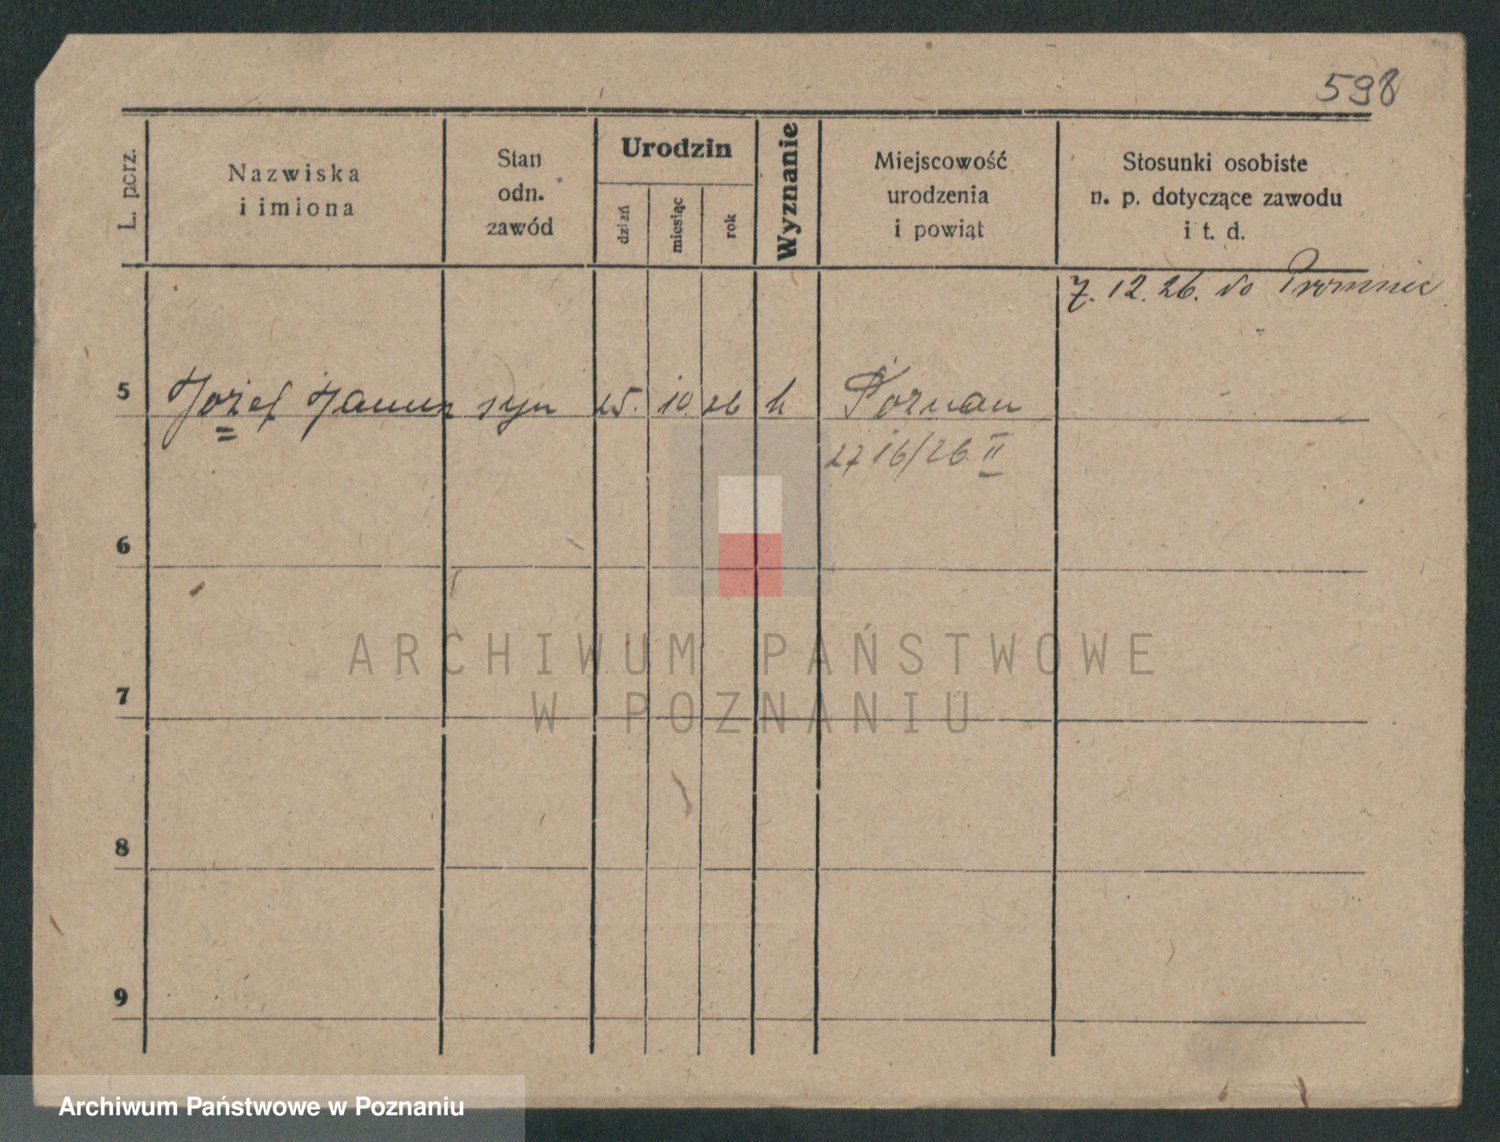 598
L. porz.
Nazwiska
i imiona
Stan
odn.
zawód
Urodzin
dzień
miesiąc
rok
Wyznanie
Miejscowość
urodzenia
i powiąt
Stosunki osobiste
n. p. dotyczące zawodu
i t. d.
7. 12. 26. do Promnic
5 Józef Janusz syn 25. 10 26 k Poznań
2716/26 II
6
7
8
9
ARCHIWUM PAŃSTWOWE
W POZNANIU
Archiwum Państwowe w Poznaniu